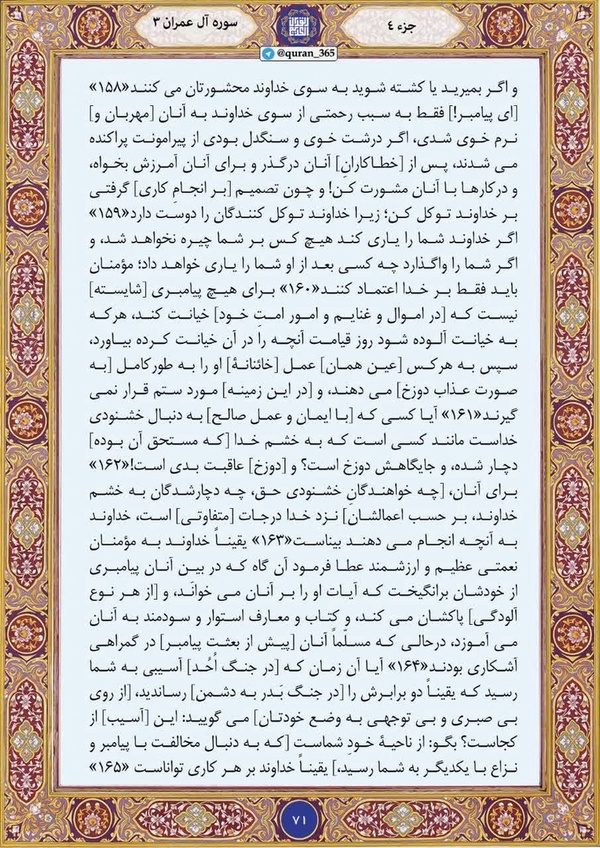 جزء ۴
سوره آل عمران ۳
@quran_365
و اگر بمیرید یا کشته شوید به سوی خداوند محشورتان می کنند«۱۵۸»
[ای پیامبر!] فقط به سبب رحمتی از سوی خداوند به آنان [مهربان و]
نرم خوی شدی، اگر درشت خوی و سنگدل بودی از پیرامونت پراکنده
می شدند، پس از [خطاکارانِ] آنان درگذر و برای آنان آمرزش بخواه،
و درکارها با آنان مشورت کن! و چون تصمیم [بر انجامِ کاری] گرفتی
بر خداوند توکل کن؛ زیرا خداوند توکل کنندگان را دوست دارد«۱۵۹»
اگر خداوند شما را یاری کند هیچ کس بر شما چیره نخواهد شد، و
اگر شما را واگذارد چه کسی بعد از او شما را یاری خواهد داد؛ مؤمنان
باید فقط بر خدا اعتماد کنند«۱۶۰» برای هیچ پیامبری [شایسته]
نیست که [در اموال و غنایم و امور امتِ خود] خیانت کند، هرکه
به خیانت آلوده شود روز قیامت آنچه را در آن خیانت کرده بیاورد،
سپس به هرکس [عین همان] عمل [خائنانۀ] او را به طورکامل [به
صورت عذاب دوزخ] می دهند، و [در این زمینه] مورد ستم قرار نمی
گیرند«۱۶۱» آیا کسی که [با ایمان و عمل صالح] به دنبال خشنودی
خداست مانند کسی است که به خشم خدا [که مستحق آن بوده]
دچار شده، و جایگاهش دوزخ است؟ و [دوزخ] عاقبت بدی است!«۱۶۲»
برای آنان، [چه خواهندگانِ خشنودی حق، چه دچارشدگان به خشم
خداوند، بر حسب اعمالشان] نزد خدا درجات [متفاوتی] است، خداوند
به آنچه انجام می دهند بیناست«۱۶۳» یقیناً خداوند به مؤمنان
نعمتی عظیم و ارزشمند عطا فرمود آن گاه که در بین آنان پیامبری
از خودشان برانگیخت که آیات او را بر آنان می خوانَد، و [از هر نوع
آلودگی] پاکشان می کند، و کتاب و معارف استوار و سودمند به آنان
می آموزد، درحالی که مسلّماً آنان [پیش از بعثت پیامبر] در گمراهی
آشکاری بودند«۱۶۴» آیا آن زمان که [در جنگ اُحُد] آسیبی به شما
رسید که یقیناً دو برابرش را [در جنگ بَدر به دشمن] رساندید، [از روی
بی صبری و بی توجهی به وضع خودتان] می گویید: این [آسیب] از
کجاست؟ بگو: از ناحیۀ خودِ شماست [که به دنبال مخالفت با پیامبر و
نزاع با یکدیگر به شما رسید،] یقیناً خداوند بر هر کاری تواناست «۱۶۵»
۷۱